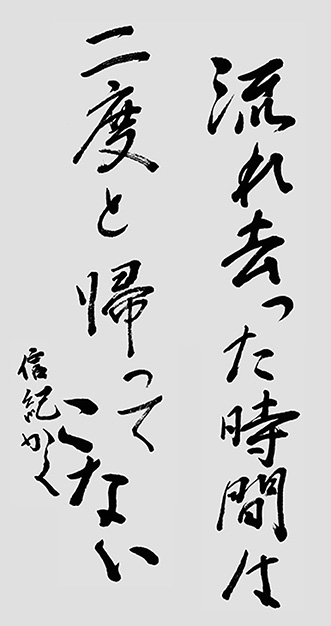 流れ去った時間は
二度と帰って
こない
信紀かく